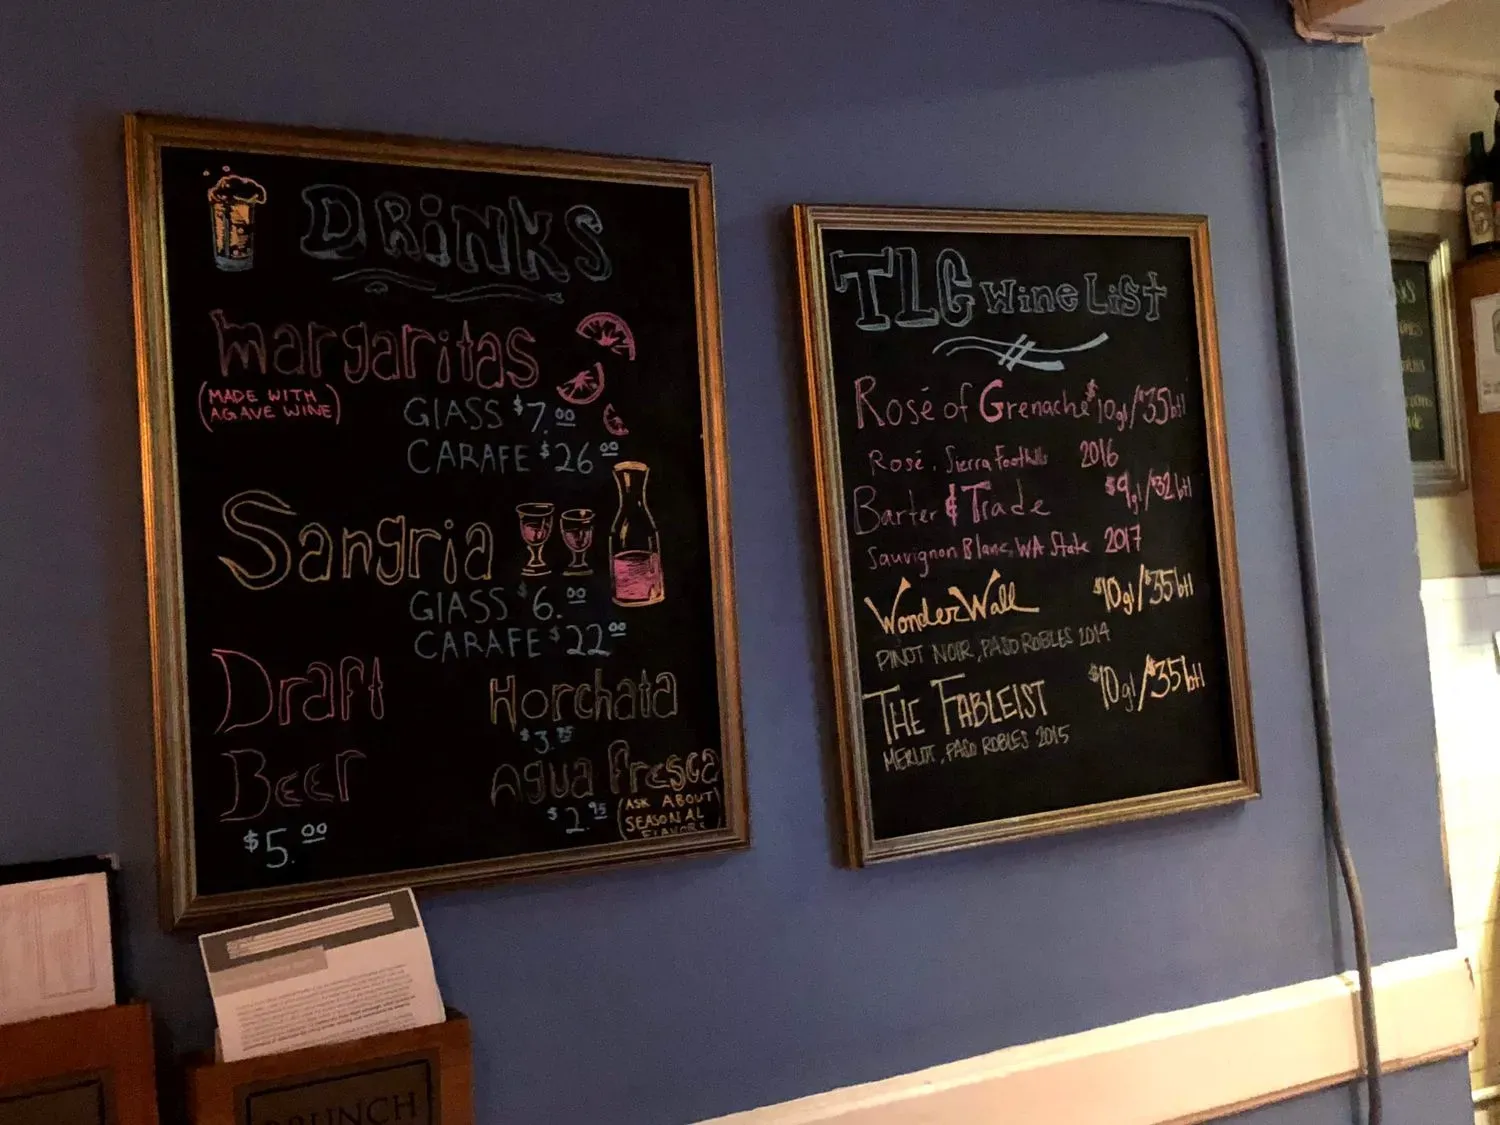 DRiNKS
margaritas
(MADE WITH
AGAVE WINE)
GlASS $7.00
CARAFE $26.00
Sangria
GlASS $6.00
CARAFE $22.00
Draft
Beer
$5.00
Horchata
$3.95
Agua Fresca
$2.95
(ASK ABOUT
SEASONAL
FLAVORS
TLC Wine LiSt
Rosé of Grenache $10gl/$35btl
Rosé, Sierra Foothills 2016
Barter & Trade $9gl/$32btl
Sauvignon Blanc, WA State 2017
WonderWall $10gl/$35btl
PINOT NOIR, PASO ROBLES 2014
THE FABLEIST $10gl/$35btl
MERLOT, PASO ROBLES 2015
BRUNCH